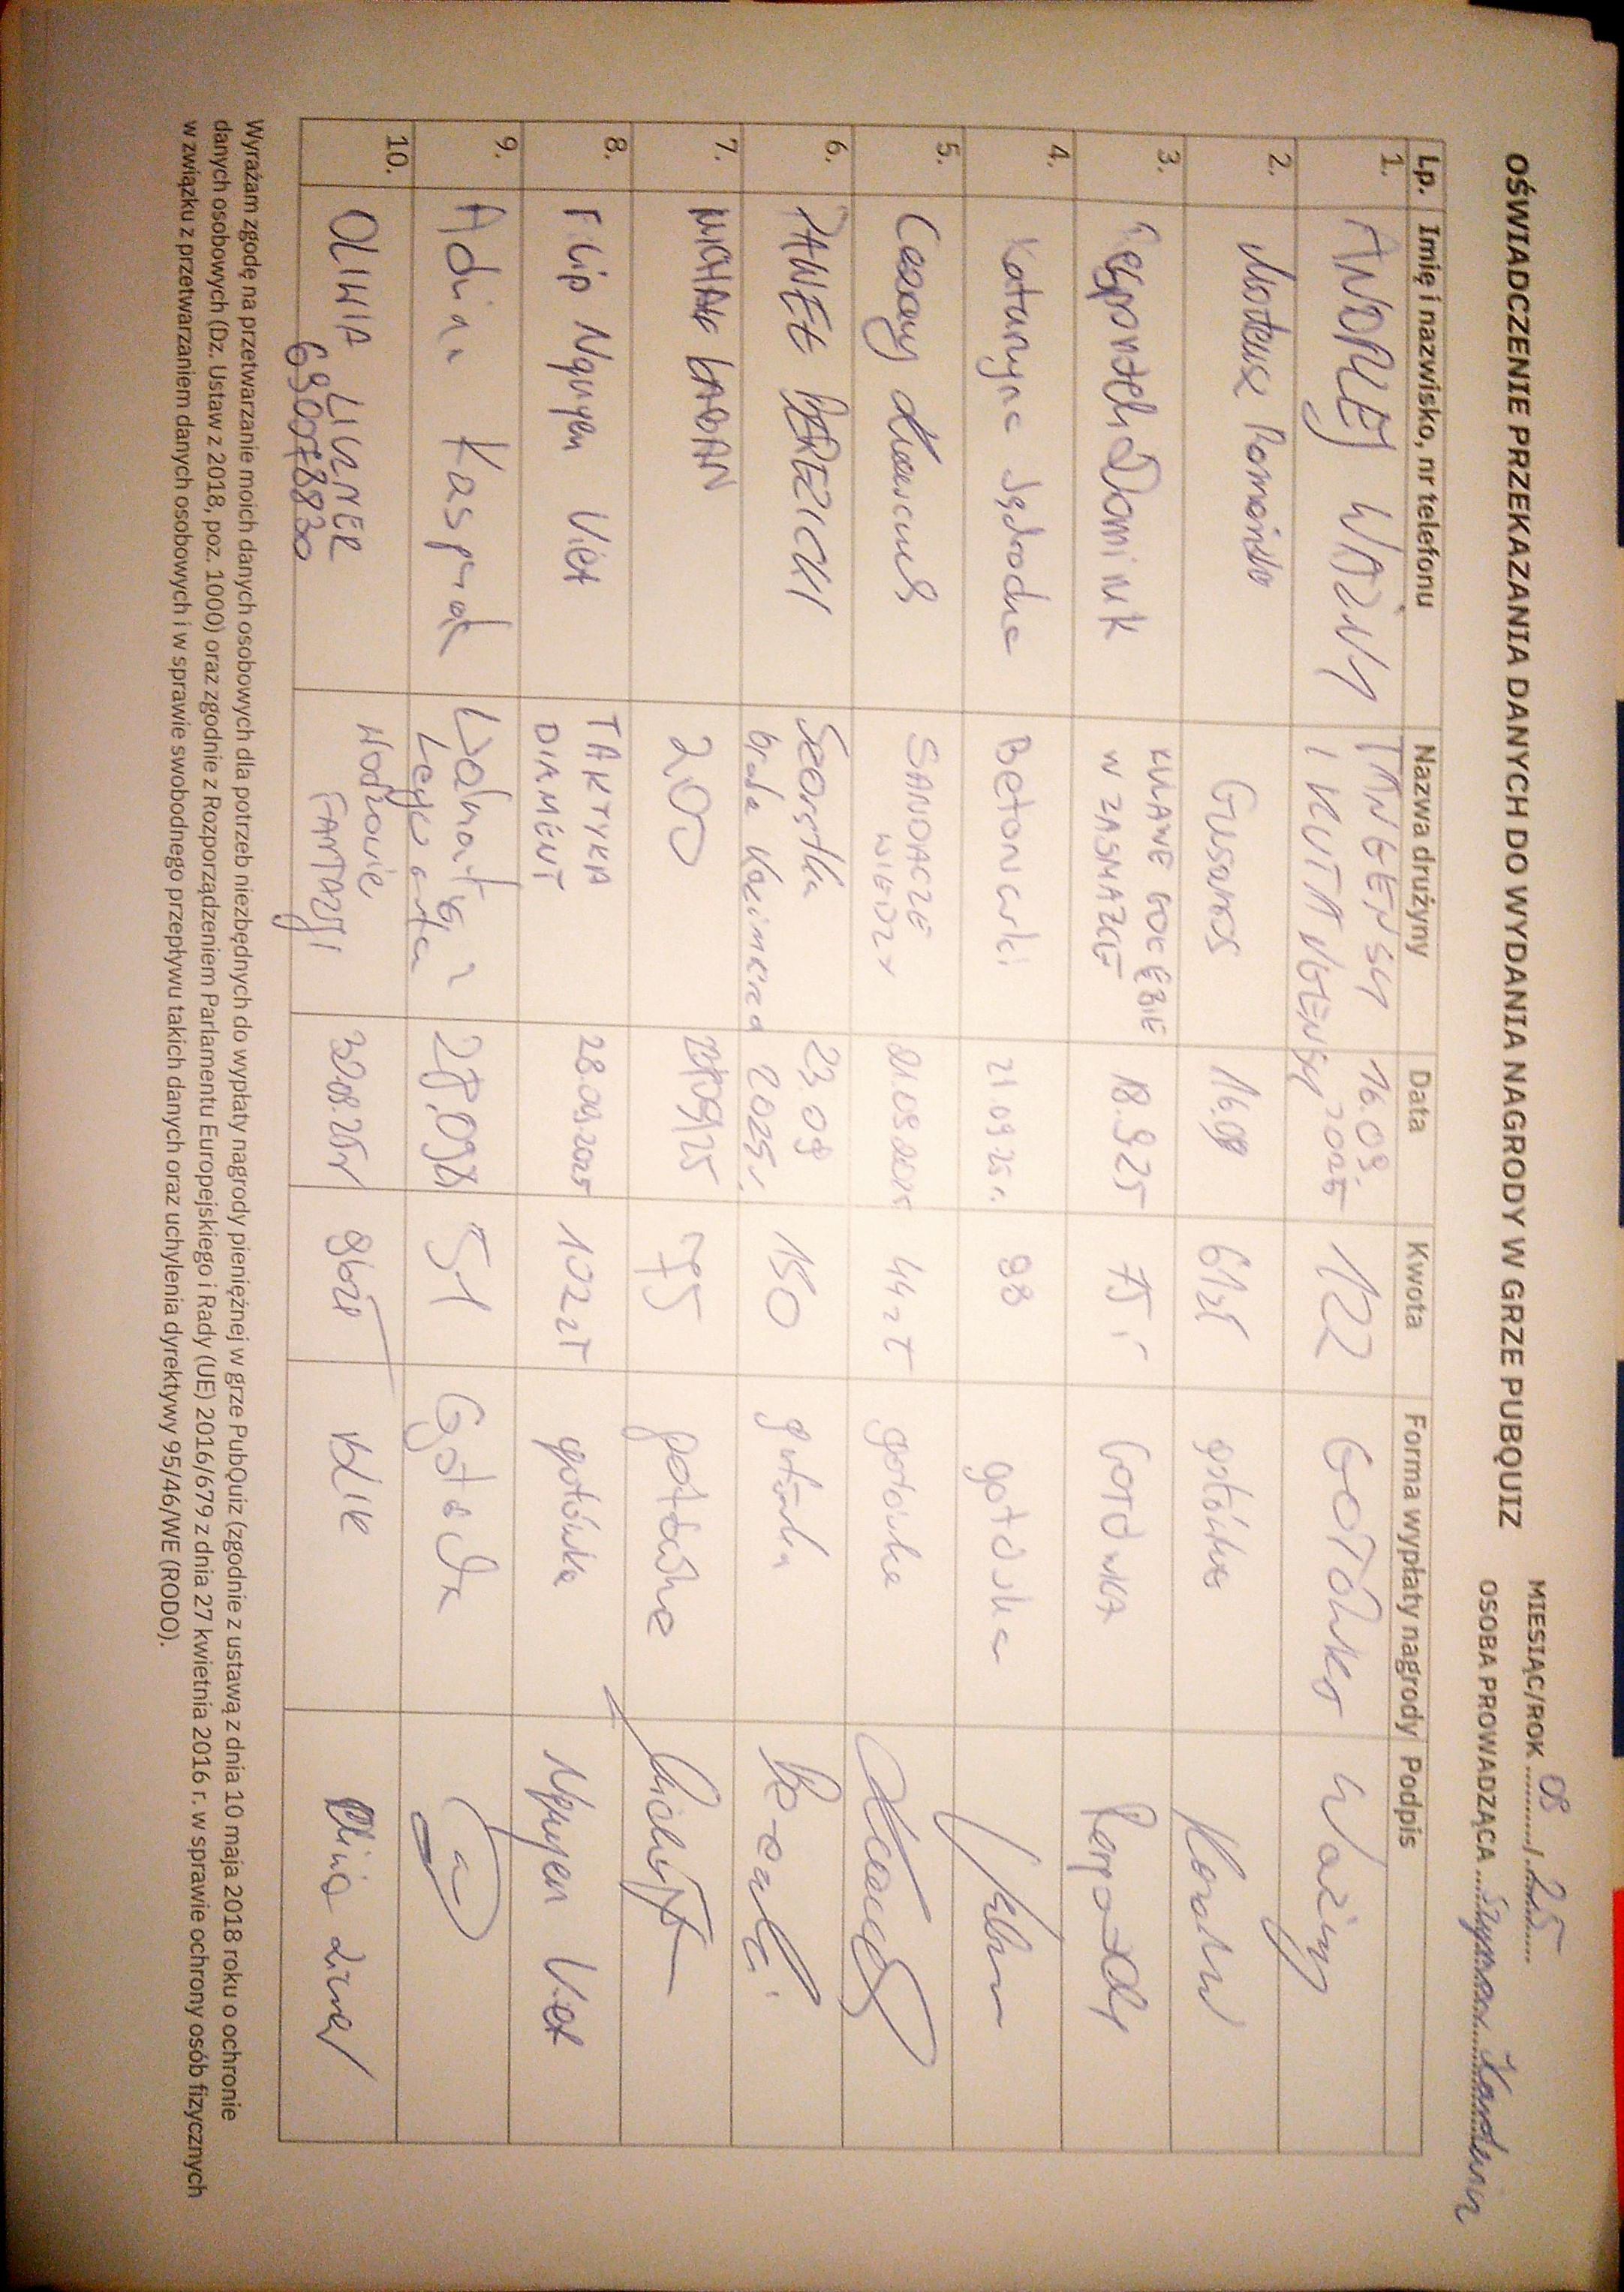 OŚWIADCZENIE PRZEKAZANIA DANYCH DO WYDANIA NAGRODY W GRZE PUBQUIZ
MIESIĄC/ROK 09 / 25
OSOBA PROWADZĄCA Szymon
Lp. Imię i nazwisko, nr telefonu Nazwa drużyny Data Kwota Forma wypłaty nagrody Podpis
1. ANDRZEJ WAŻNY TANGENSY I KUTANGENSY 16.09.2025 122 GOTÓWKA Ważny
2. Mateusz Gusanos 16.09 61zł gotówka
3. Dominik KULAWE GOŁĘBIE W ZASMAŻCE 18.9.25 75 GOTÓWKA
4. Katarzyna Betoniarki 21.09.25r. 98 gotówka
5. Cezary SANDACZE WIEDZY 21.09.2025 44zł gotówka
6. PAWEŁ Szorstka broda Kazimierza 23.09 2025r. 150 gotówka
7. MICHAŁ 200 25 75 gotówka
8. Filip Nguyen Viet TAKTYKA DIAMENT 28.09.2025 102zł gotówka Nguyen Viet
9. Kasprak 28.09 51 Gotówka
10. OLIWIA LIZNER 690078830 Wodzowie FANTAZJI 30.09.25r 96zł BLIK
Wyrażam zgodę na przetwarzanie moich danych osobowych dla potrzeb niezbędnych do wypłaty nagrody pieniężnej w grze PubQuiz (zgodnie z ustawą z dnia 10 maja 2018 roku o ochronie
danych osobowych (Dz. Ustaw z 2018, poz. 1000) oraz zgodnie z Rozporządzeniem Parlamentu Europejskiego i Rady (UE) 2016/679 z dnia 27 kwietnia 2016 r. w sprawie ochrony osób fizycznych
w związku z przetwarzaniem danych osobowych i w sprawie swobodnego przepływu takich danych oraz uchylenia dyrektywy 95/46/WE (RODO).